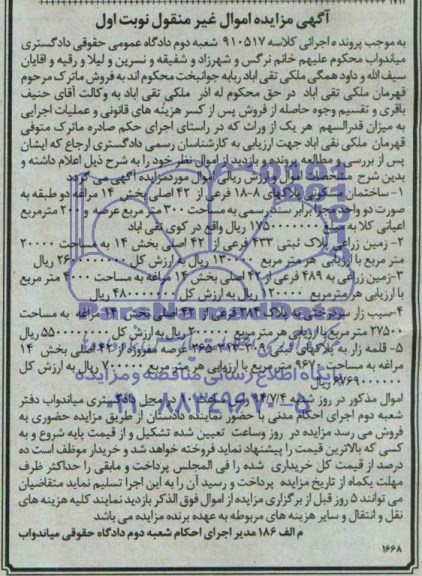 آگهی مزایده اموال غیر منقول نوبت اول
به موجب پرونده اجرائی کلاسه ۹۱۰۵۱۷ شعبه دوم دادگاه عمومی حقوقی دادگستری
میاندواب محکوم علیهم خانم نرگس و شهرزاد و شفیقه و نسرین و لیلا و رقیه و آقایان
سیف الله و داود همگی ملکی تقی اباد ربابه جوانبخت محکوم اند به فروش ماترک مرحوم
قهرمان ملکی تقی اباد در حق محکوم له اذر ملکی تقی اباد به وکالت آقای حنیف
باقری و تقسیم وجوه حاصله از فروش پس از کسر هزینه های قانونی و عملیات اجرایی
به میزان قدرالسهم هر یک از وراث که در راستای اجرای حکم صادره ماترک متوفی
قهرمان ملکی نقی اباد جهت ارزیابی به کارشناسان رسمی دادگستری ارجاع که ایشان
پس از بررسی و مطالعه پرونده و بازدید از اموال نظر خود را به شرح ذیل اعلام داشته و
بدین شرح مشخصات اموال و ارزش ریالی اموال موردمزایده آگهی می گردد
۱- ساختمان مسکونی پلاکهای ۸-۱۸ فرعی از ۴۲ اصلی بخش ۱۴ مراغه دو طبقه به
صورت دو واحد مجزا برابر سند رسمی به مساحت ۳۰۰ متر مربع عرصه و ۲۰۰ مترمربع
اعیانی کلا به مبلغ ۱۷۵۰۰۰۰۰۰۰ ریال واقع در کوی تقی اباد
۲- زمین زراعی پلاک ثبتی ۴۳۳ فرعی از ۴۲ اصلی بخش ۱۴ به مساحت ۲۰۰۰۰
متر مربع با ارزیابی هر متر مربع ۱۳۰۰۰۰ ریال به ارزش کل ریال
۳-زمین زراعی به ۴۸۹ فرعی از ۴۲ اصلی بخش ۱۴ مراغه به مساحت ۴۰۰۰ متر مربع
با ارزیابی هر مترمربع ۱۲۰۰۰۰ ریال به ارزش کل ۴۸۰۰۰۰۰۰۰ ریال
۴-سیب زار سردرختی به پلاک ۲۸۴ فرعی از ۴۲ اصلی بخش ۱۴ مراغه به مساحت
۲۷۵۰۰ متر مربع با ارزیابی هر متر مربع ۲۰۰۰۰۰ ریال به ارزش کل ۵۵۰۰۰۰۰۰۰۰ ریال
۵- قلمه زار به پلاکهای ثبتی عرصه مفروزه از ۴۲ اصلی بخش ۱۴
مراغه به مساحت ۹۶۷۰ متر مربع با ارزیابی هر متر مربع ۷۰۰۰۰۰ ریال به ارزش کل
۶۷۶۹۰۰۰۰۰۰ ریال
اموال مذکور در روز شنبه ۹۴/۷/۴ در محل دادگستری میاندواب دفتر
شعبه دوم اجرای احکام مدنی با حضور نماینده دادستان از طریق مزایده حضوری به
فروش می رسد مزایده در روز وساعت تعیین شده تشکیل و از قیمت پایه شروع و به
کسی که بالاترین قیمت را پیشنهاد نماید فروخته خواهد شد و خریدار موظف است ده
درصد از قیمت کل خریداری شده را فی المجلس پرداخت و مابقی را حداکثر ظرف
مهلت یکماه از تاریخ مزایده پرداخت و رسید آن را به این اجرا تسلیم نماید متقاضیان
می توانند ۵ روز قبل از برگزاری مزایده از اموال فوق الذکر بازدید نمایند کلیه هزینه های
نقل و انتقال و سایر هزینه های مربوطه به عهده برنده مزایده می باشد
م الف ۱۸۶ مدیر اجرای احکام شعبه دوم دادگاه حقوقی میاندواب
۱۶۶۸
پایگاه اطلاع رسانی مناقصه و مزایده
۰۲۱-۸۸۳۴۹۶۷۰-۵